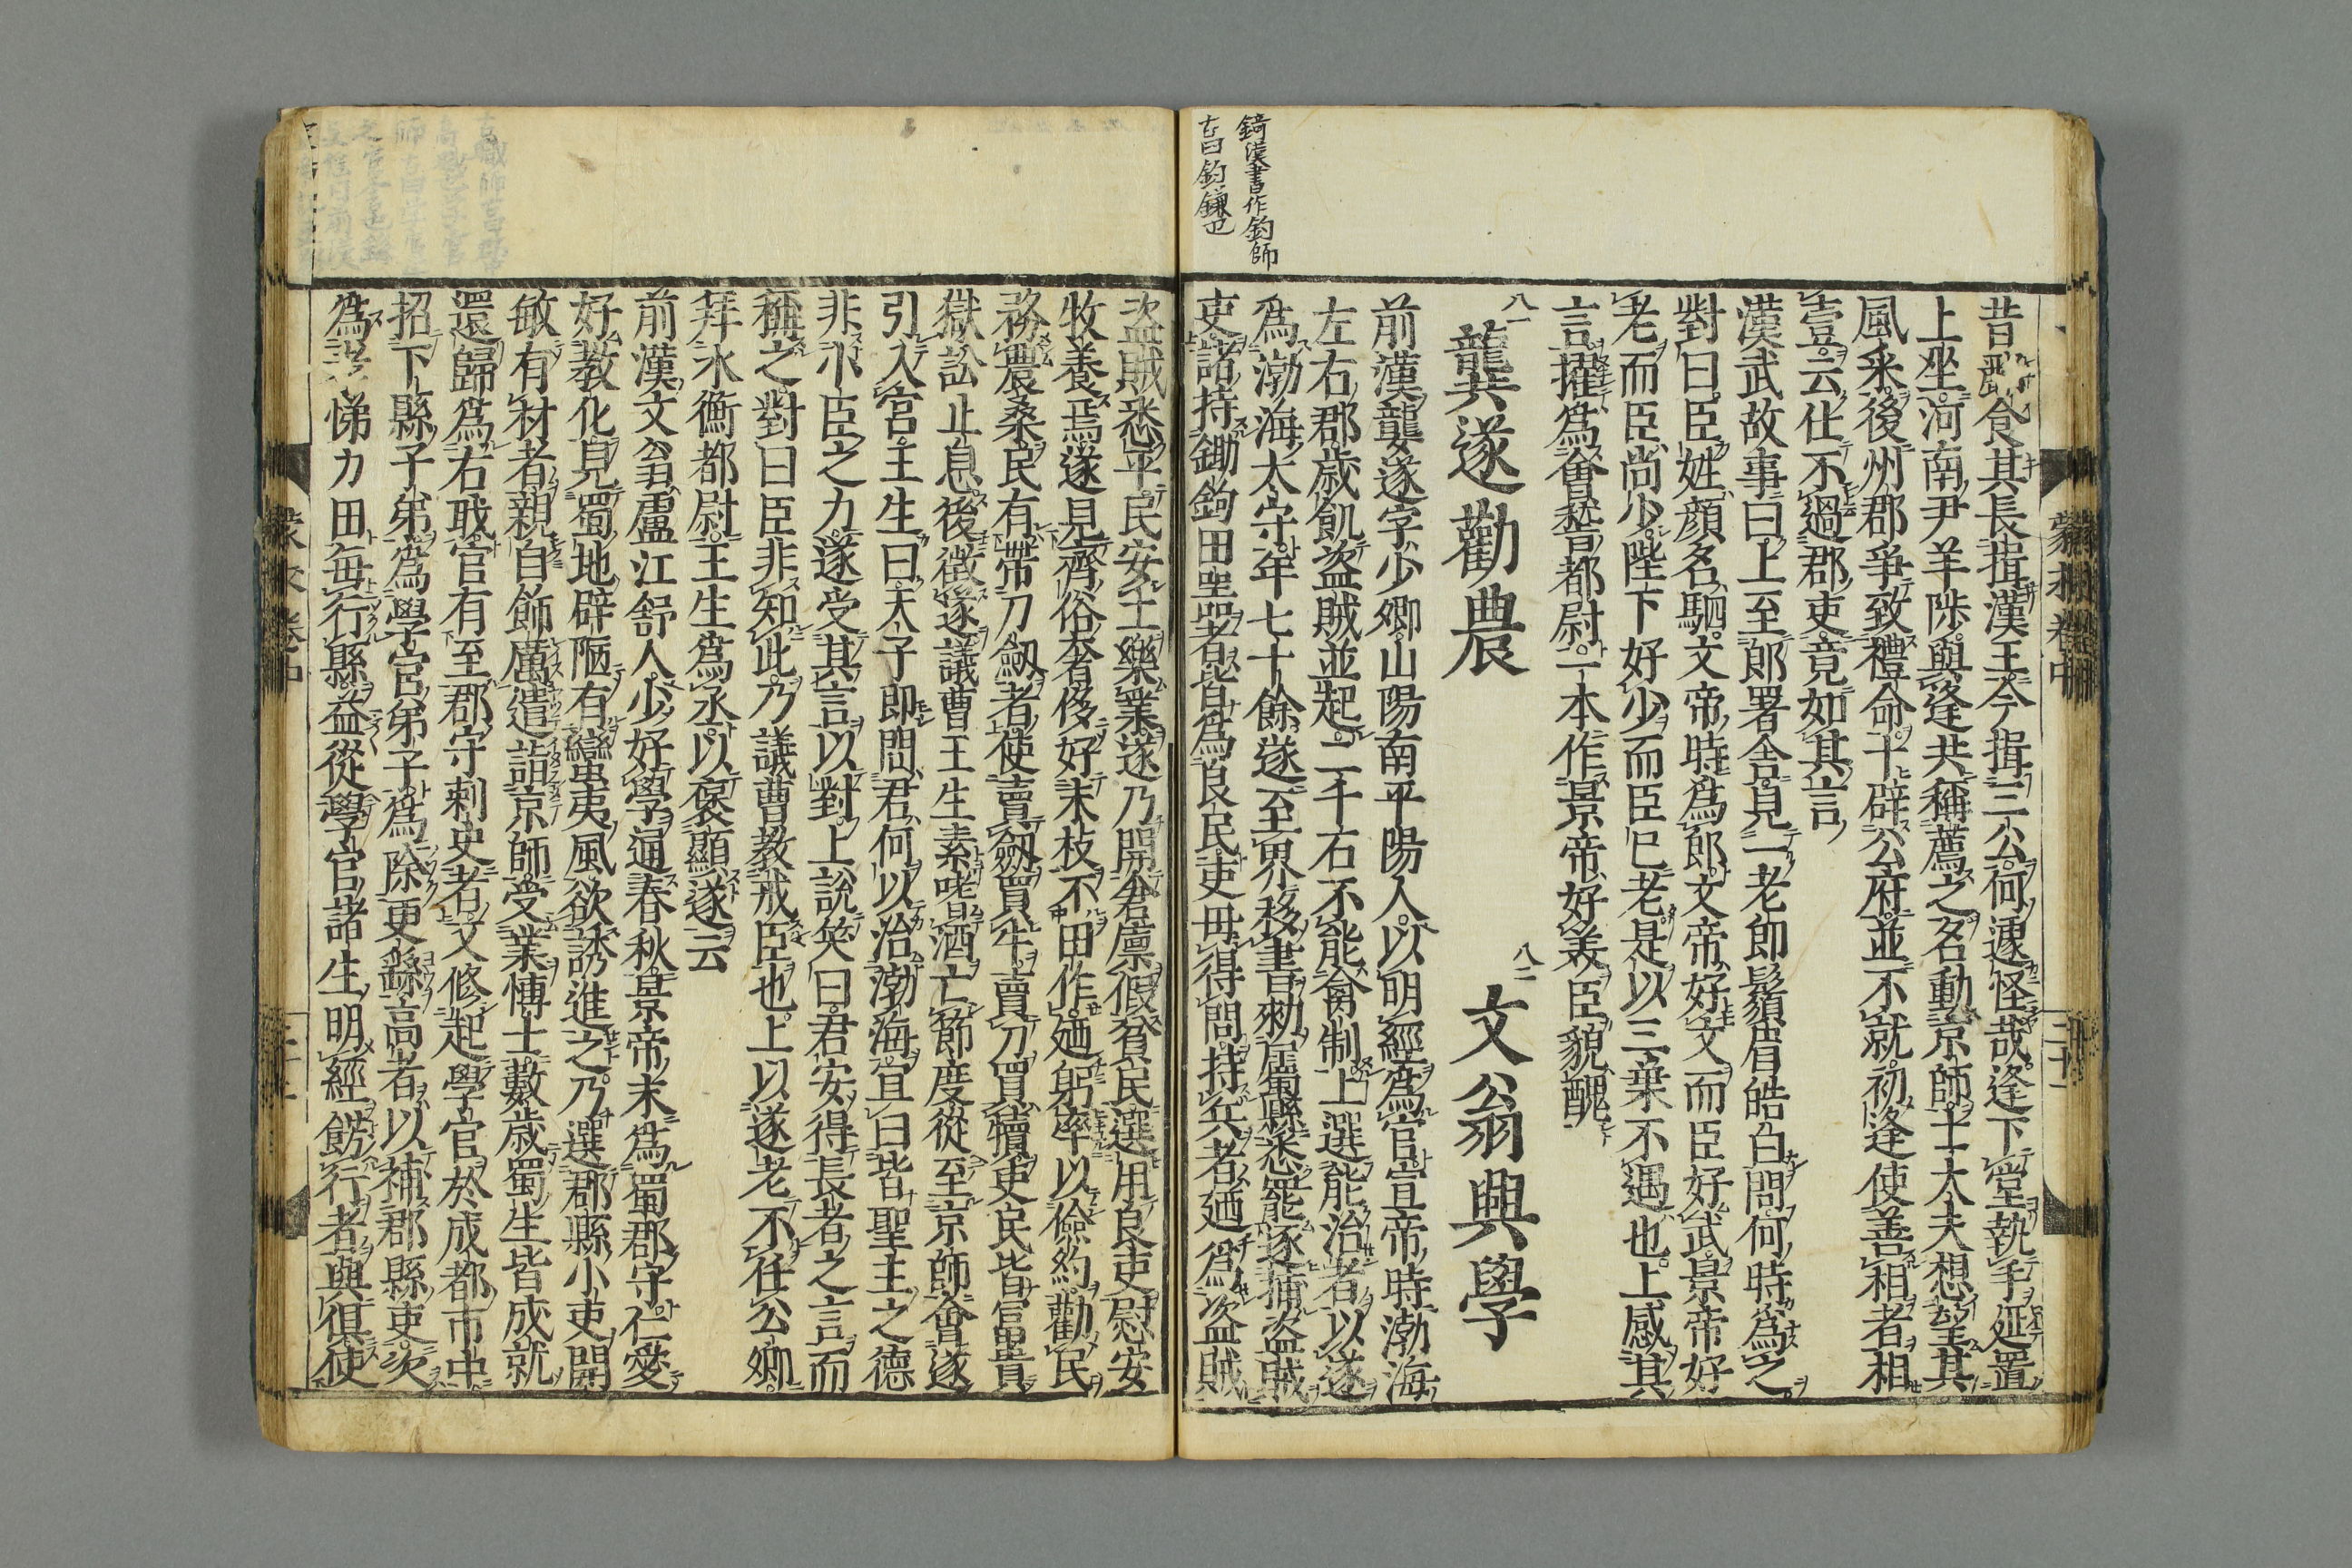 錡漢書作鉤師
古曰鉤鎌也
昔酈食其長揖漢王今揖三公何遽怪哉逢下堂執手延置
上坐河南尹羊陟與逢共稱薦之名動京師士大夫想望其
風采後州郡爭致禮命十辟公府並不就初逢使善相者相
壹云仕不過郡吏竟如其言
漢武故事曰上至郎署舍見一老郎鬚眉皓白問何時爲之
對曰臣姓顔名駟文帝時爲郎文帝好文而臣好武景帝好
老而臣尚少陛下好少而臣已老是以三葉不遇也上感其
言擢爲會稽都尉一本作景帝好美臣貌醜
八一 龔遂勸農 八二 文翁興學
前漢龔遂字少卿山陽南平陽人以明經爲官宣帝時渤海
左右郡歳飢盗賊並起二千石不能禽制上選能治者以遂
爲渤海太守年七十餘遂至界移書勑屬縣悉罷逐捕盗賊
吏諸持鋤鉤田噐者皆爲良民吏毋得問持兵者廼爲盗賊
盗賊悉平民安土樂業遂乃開倉廪假貧民選用良吏慰安
牧養焉遂見齊俗奢侈好末枝不田作廼躬率以儉約勸民
務農桑民有帶刀劔者使賣劔買牛賣刀買犢吏民皆富貴
獄訟止息後徴遂議曹王生素嗜酒亡節度從至京師會遂
引入宮王生曰天子即問君何以治渤海宜曰皆聖主之德
非小臣之力遂受其言以對上説笑曰君安得長者之言而
稱之對曰臣非知此乃議曹教戒臣也上以遂老不任公卿
拜水衡都尉王生爲丞以褒顯遂云
前漢文翁盧江舒人少好學通春秋景帝末爲蜀郡守仁愛
好教化見蜀地辟陋有蠻夷風欲誘進之乃選郡縣小吏開
敏有材者親自飾厲遣詣京師受業博士數歳蜀生皆成就
還歸爲右職官有至郡守刺史者又修起學官於成都市中
招下縣子弟爲學官弟子爲除更繇高者以補郡縣吏次
爲孝悌力田毎行縣益從學官諸生明經飭行者與倶使
蒙求卷中
蒙求卷中